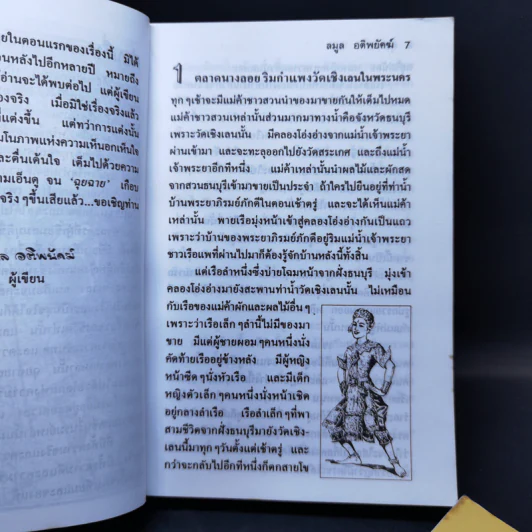 ยในตอนแรกของเรื่องนี้ มิได้
อนหลังไปอีกหลายปี หมายถึง
อ่านจะได้พบต่อไป แต่ผู้เขียน
องจริง เมื่อมิใช่เรื่องจริงแล้ว
ที่แต่งขึ้น แต่ทว่าการแต่งนั้น
มโนภาพแห่งความเห็นอกเห็นใจ
และตื่นเต้นใจ เต็มไปด้วยความ
ามเอ็นดู จน "ฉุยฉาย" เกือบ
จริงๆขึ้นเสียแล้ว...ขอเชิญท่าน
ล อติพยัคฆ์
ผู้เขียน
ลมูล อติพยัคฆ์ 7
ตลาดนางลอย ริมกำแพงวัดเชิงเลนในพระนคร
ทุกๆเช้าจะมีแม่ค้าชาวสวนนำของมาขายกันให้เต็มไปหมด
แม่ค้าชาวสวนเหล่านั้นส่วนมากมาทางน้ำคือจังหวัดธนบุรี
เพราะวัดเชิงเลนนั้น มีคลองโอ่งอ่างจากแม่น้ำเจ้าพระยา
ผ่านเข้ามา และจะทะลุออกไปยังวัดสระเกศ และถึงแม่น้ำ
เจ้าพระยาอีกทีหนึ่ง แม่ค้าเหล่านั้นนำผลไม้และผักสด
จากสวนธนบุรีเข้ามาขายเป็นประจำ ถ้าใครไปยืนอยู่ที่ท่าน้ำ
บ้านพระยาภิรมย์ภักดีในตอนเช้าตรู่ และจะได้เห็นแม่ค้า
เหล่านั้น พายเรือมุ่งหน้าเข้าสู่คลองโอ่งอ่างกันเป็นแถว
เพราะว่าบ้านของพระยาภิรมย์ภักดีอยู่ริมแม่น้ำเจ้าพระยา
ชาวเรือแพที่ผ่านไปมาก็ต้องรู้จักบ้านหลังนี้ทั้งสิ้น
แต่เรือลำหนึ่งซึ่งบ่ายโฉมหน้าจากฝั่งธนบุรี มุ่งเข้า
คลองโอ่งอ่างมายังสะพานท่าน้ำวัดเชิงเลนนั้น ไม่เหมือน
กับเรือของแม่ค้าผักและผลไม้อื่นๆ
เพราะว่าเรือเล็กๆลำนี้ไม่มีของมา
ขาย มีแต่ผู้ชายผอมๆคนหนึ่งนั่ง
คัดท้ายเรืออยู่ข้างหลัง มีผู้หญิง
หน้าซีดๆนั่งหัวเรือ และมีเด็ก
หญิงตัวเล็กๆคนหนึ่งนั่งหน้าเชิด
อยู่กลางลำเรือ เรือลำเล็กๆที่พา
สามชีวิตจากฝั่งธนบุรีมายังวัดเชิง-
เลนนี้มาทุกๆวันตั้งแต่เช้าตรู่ และ
กว่าจะกลับไปอีกทีก็ตกสายไข